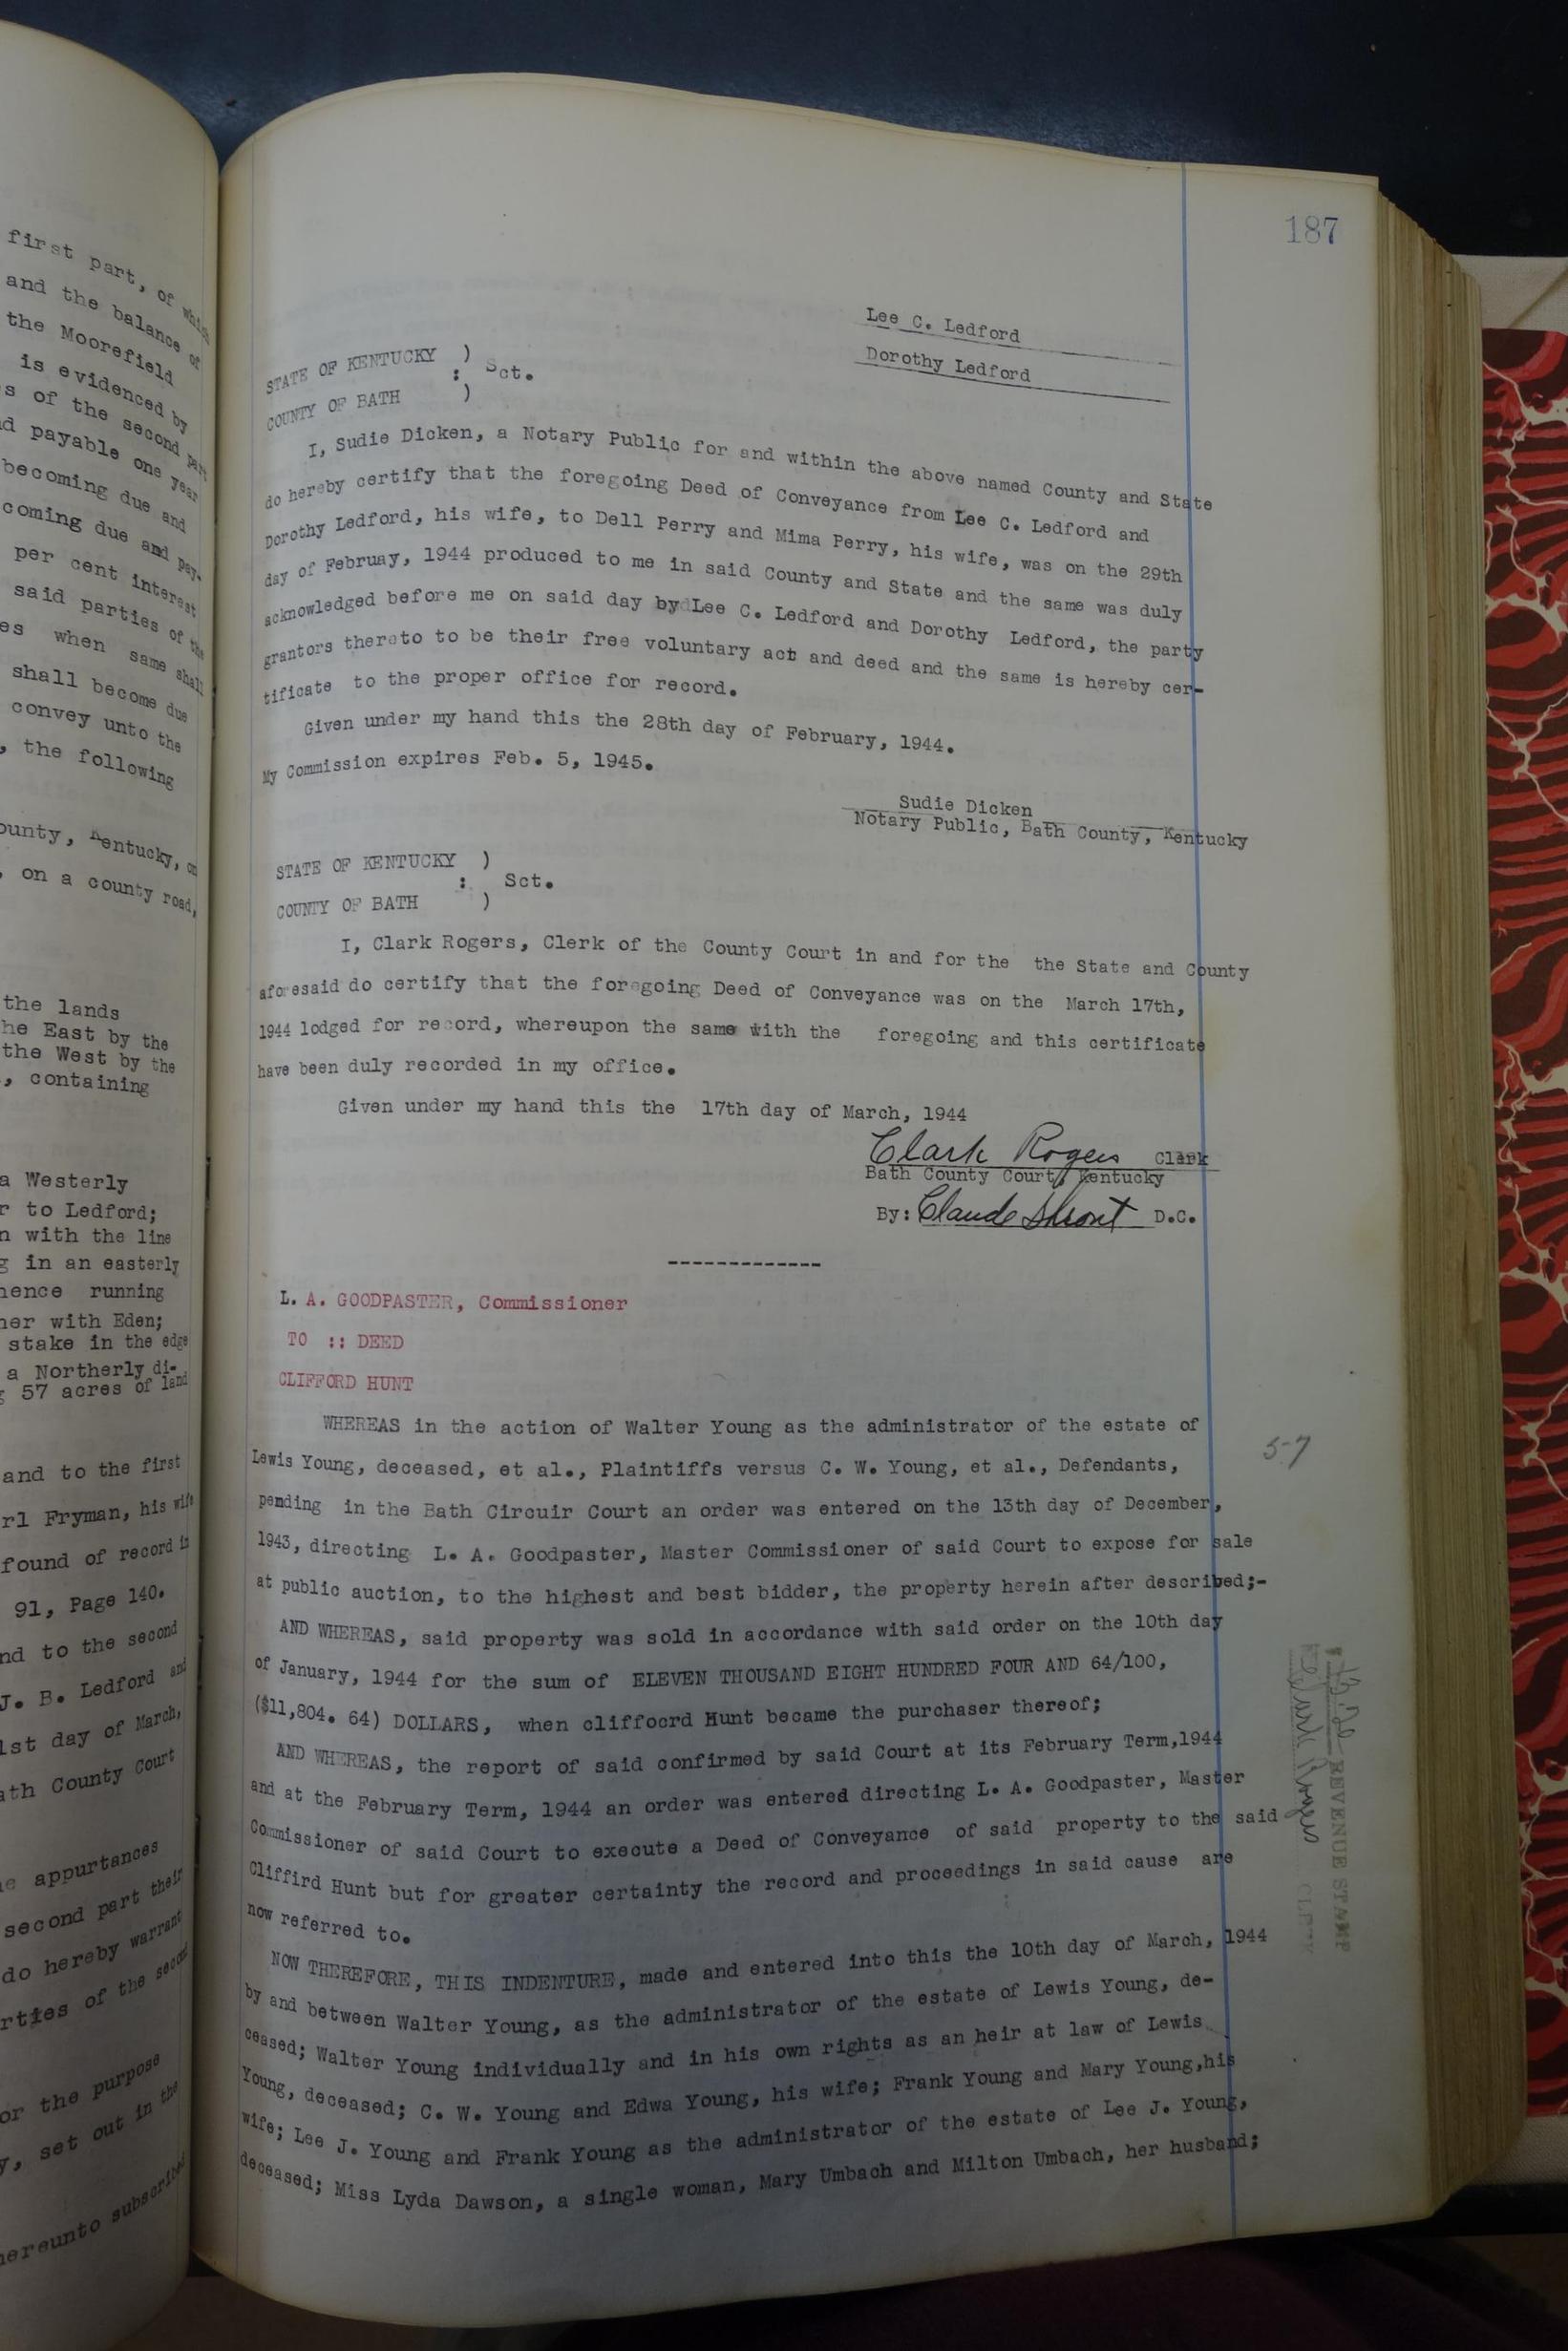 first part, of which
and the balance of
the Moorefield
is evidenced by
s of the second part
d payable one year
becoming due and
coming due and pay-
per cent interest
said parties of the
es when same shall
shall become due
convey unto the
, the following
ounty, Kentucky, on
, on a county road,
the lands
he East by the
the West by the
, containing
a Westerly
r to Ledford;
n with the line
g in an easterly
hence running
ner with Eden;
stake in the edge
a Northerly di-
g 57 acres of land
and to the first
rl Fryman, his wife
found of record in
91, Page 140.
nd to the second
J. B. Ledford and
1st day of March,
ath County Court
e appurtances
second part their
do hereby warrant
rties of the second
or the purpose
y, set out in the
hereunto subscribed
187
Lee C. Ledford
Dorothy Ledford
STATE OF KENTUCKY )
: Sct.
COUNTY OF BATH )
I, Sudie Dicken, a Notary Public for and within the above named County and State
do hereby certify that the foregoing Deed of Conveyance from Lee C. Ledford and
Dorothy Ledford, his wife, to Dell Perry and Mima Perry, his wife, was on the 29th
day of Februay, 1944 produced to me in said County and State and the same was duly
acknowledged before me on said day by Lee C. Ledford and Dorothy Ledford, the party
grantors thereto to be their free voluntary act and deed and the same is hereby cer-
tificate to the proper office for record.
Given under my hand this the 28th day of February, 1944.
My Commission expires Feb. 5, 1945.
Sudie Dicken
Notary Public, Bath County, Kentucky
STATE OF KENTUCKY )
: Sct.
COUNTY OF BATH )
I, Clark Rogers, Clerk of the County Court in and for the the State and County
aforesaid do certify that the foregoing Deed of Conveyance was on the March 17th,
1944 lodged for record, whereupon the same with the foregoing and this certificate
have been duly recorded in my office.
Given under my hand this the 17th day of March, 1944
Clark Rogers Clerk
Bath County Court, Kentucky
By: Claude Shrout D.C.
-------------
L. A. GOODPASTER, Commissioner
TO :: DEED
CLIFFORD HUNT
WHEREAS in the action of Walter Young as the administrator of the estate of
Lewis Young, deceased, et al., Plaintiffs versus C. W. Young, et al., Defendants,
57
pending in the Bath Circuir Court an order was entered on the 13th day of December,
1943, directing L. A. Goodpaster, Master Commissioner of said Court to expose for sale
at public auction, to the highest and best bidder, the property herein after described;-
AND WHEREAS, said property was sold in accordance with said order on the 10th day
of January, 1944 for the sum of ELEVEN THOUSAND EIGHT HUNDRED FOUR AND 64/100,
($11,804. 64) DOLLARS, when cliffocrd Hunt became the purchaser thereof;
AND WHEREAS, the report of said confirmed by said Court at its February Term,1944
and at the February Term, 1944 an order was entered directing L. A. Goodpaster, Master
Commissioner of said Court to execute a Deed of Conveyance of said property to the said
Cliffird Hunt but for greater certainty the record and proceedings in said cause are
now referred to.
NOW THEREFORE, THIS INDENTURE, made and entered into this the 10th day of March, 1944
by and between Walter Young, as the administrator of the estate of Lewis Young, de-
ceased; Walter Young individually and in his own rights as an heir at law of Lewis
Young, deceased; C. W. Young and Edwa Young, his wife; Frank Young and Mary Young,his
wife; Lee J. Young and Frank Young as the administrator of the estate of Lee J. Young,
deceased; Miss Lyda Dawson, a single woman, Mary Umbach and Milton Umbach, her husband;
REVENUE STAMP
Clark Rogers CLERK